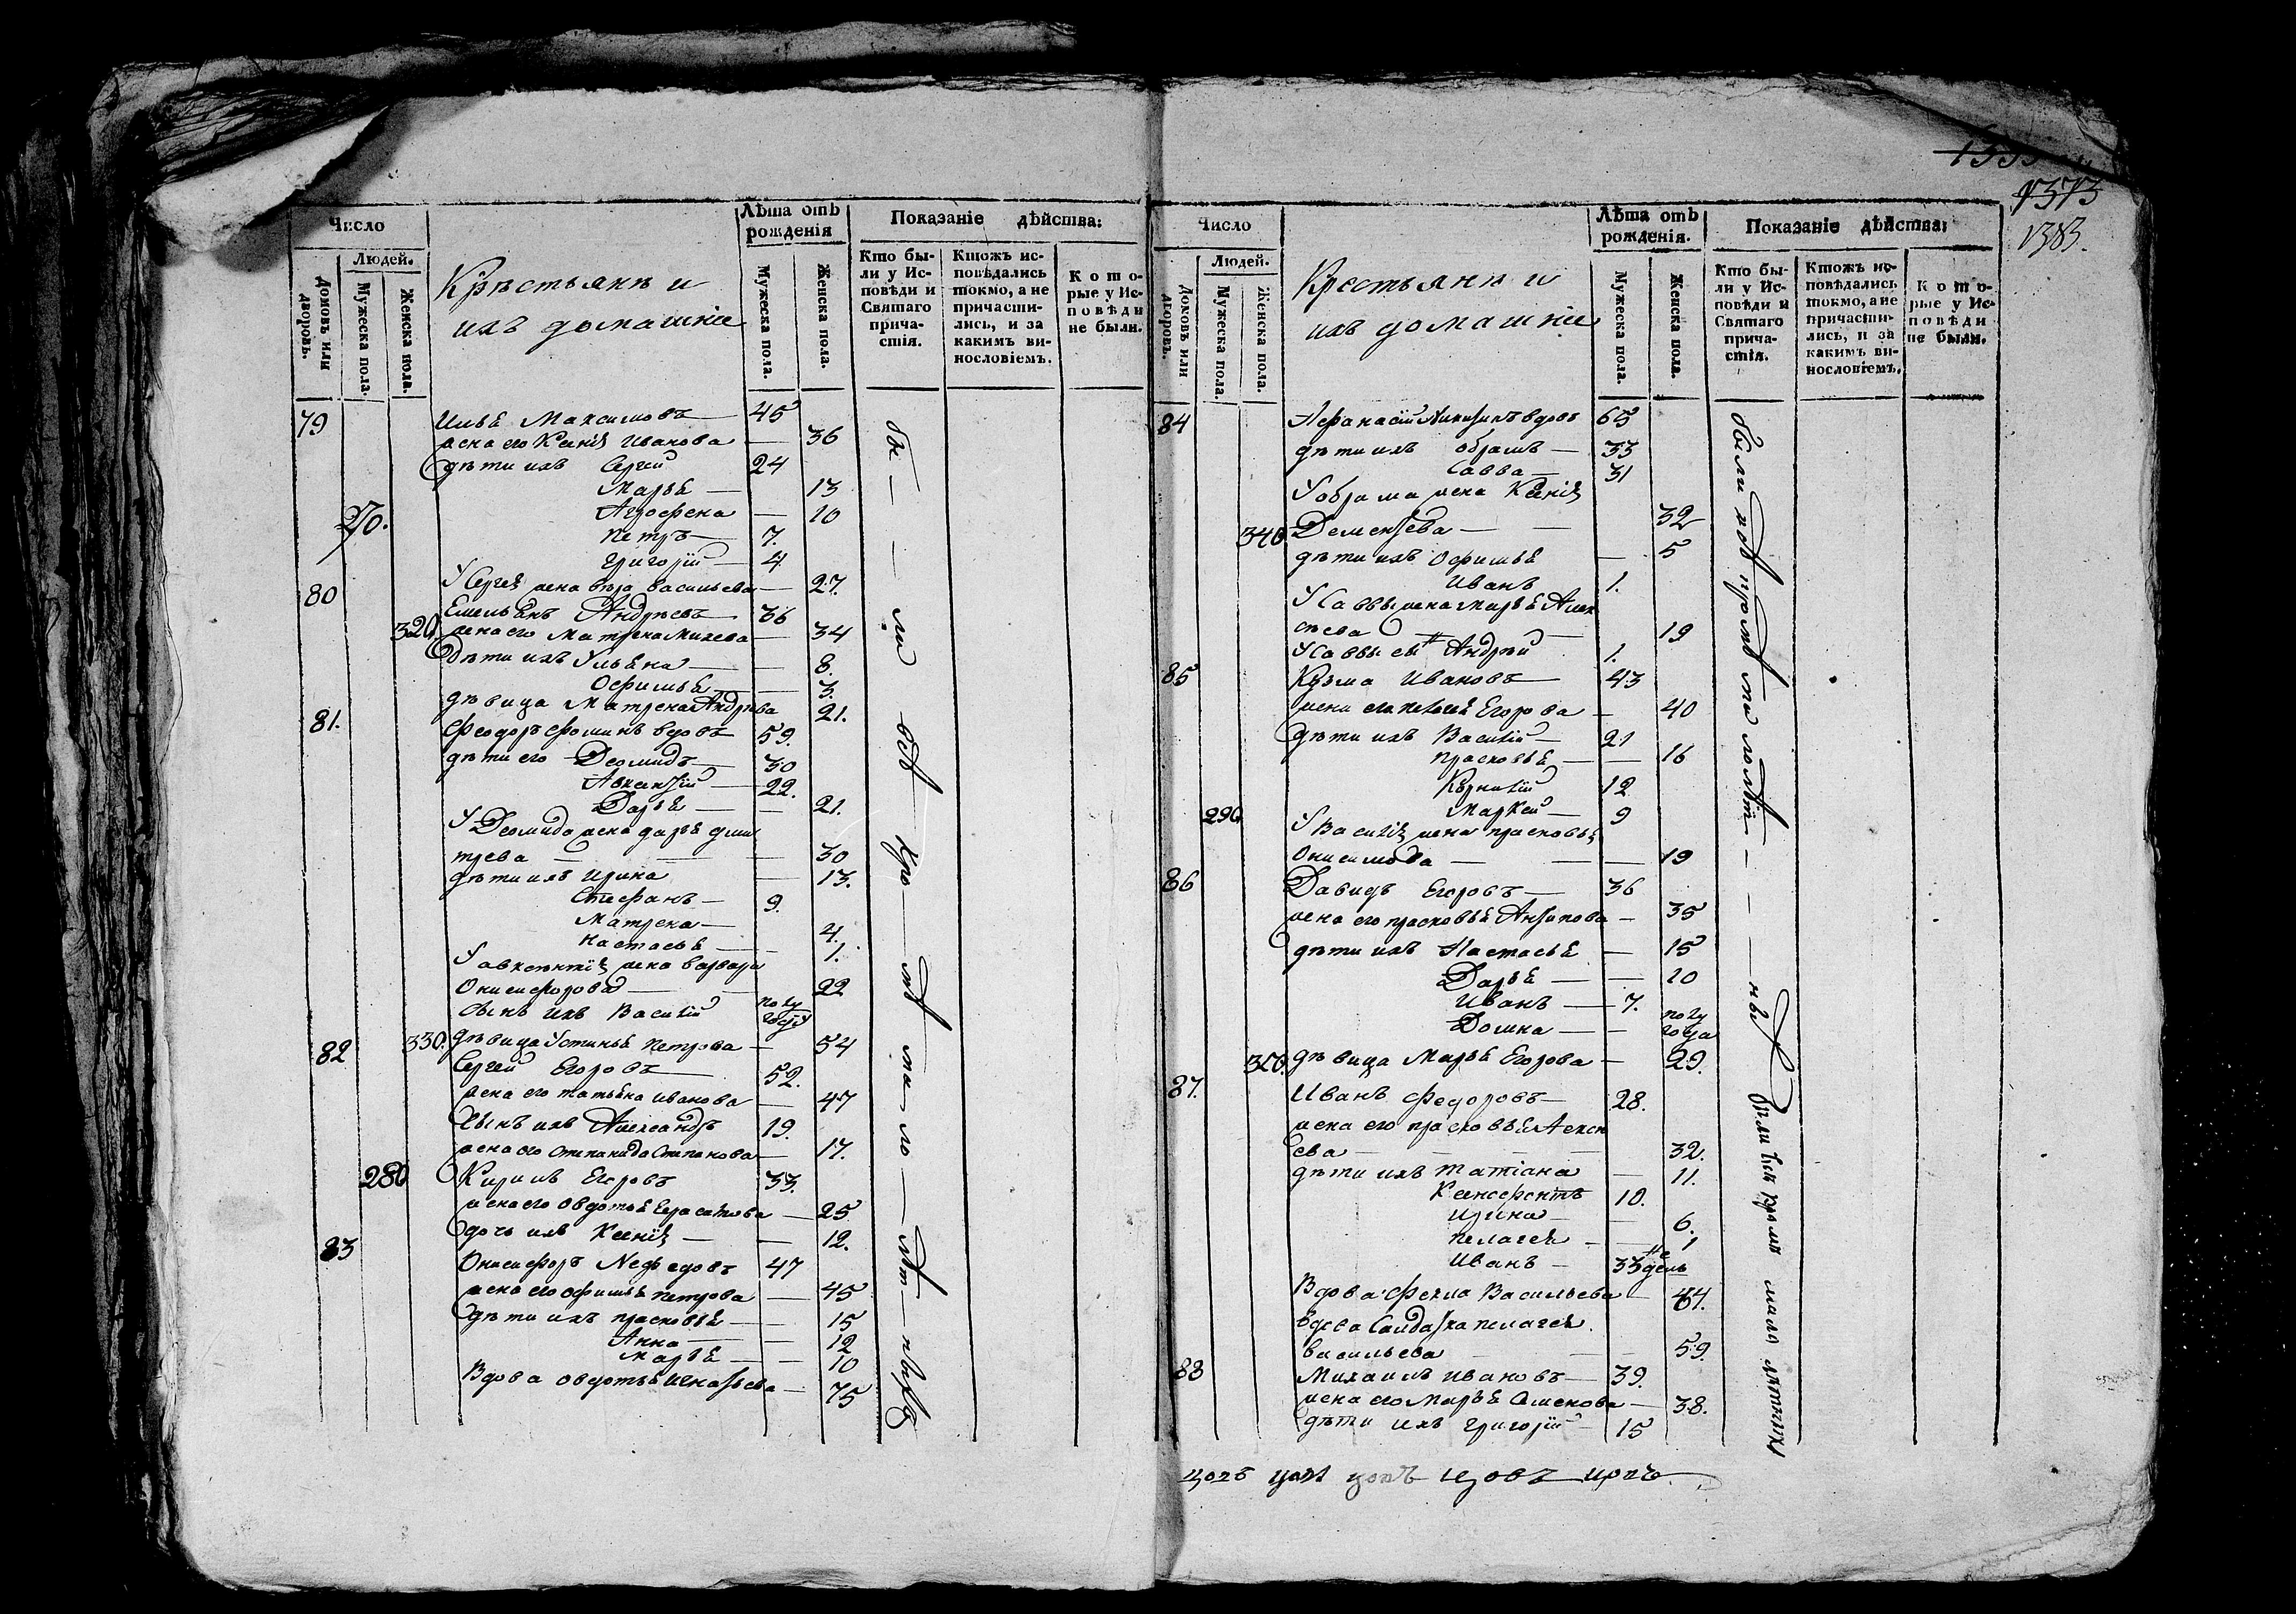 Число
Людей.
Домовъ или дворовъ.
Мужеска пола.
Женска пола.
Крѣстьянѣ и
ихъ домашніе
Лѣта отъ
рожденія
Мужеска пола.
Женска пола.
Показаніе дѣйства:
Кто бы-
ли у Ис-
повѣди и
Святаго
прича-
стія.
Ктожъ ис-
повѣдались
токмо, а не
причасти-
лись, и за
какимъ ви-
нословіемъ.
К о т о-
рые у Ис-
п о в ѣ д и
не были.
79 Илья Максимовъ — 45
жена его Ксенія Иванова — 36
дѣти ихъ Сергей 24
Марья — 13
270. Агрофена — 10
Петръ — 7.
Григорій — 4
У Сергея жена вѣра васильева — 27.
80 Емельянъ Андрѣевъ — 36
320. жена его Матрена Михева — 34
Дѣти ихъ Ульяна — 8.
Офимья — 3.
дѣвица Матрена Андрѣва 21.
81. Феодоръ Фоминъ вдовъ 59.
дѣти его Деомидъ — 30
Авксентій — 22.
Дарья — 21.
У Деомида жена дарья дми
трева — 30
дѣти ихъ Ирина — 13.
Стефанъ — 9.
Матрена — 4.
Настасья — 1.
У авксентія жена варвара
Онисифорова — 22
Сынъ ихъ Василій полу
году
330. дѣвица Устинья Петрова — 54
82 Сергей Егоровъ 52.
жена его татьяна иванова — 47
Сынъ ихъ Александръ 19.
жена его Степанида Степанова — 17.
280 Кирилъ Егоровъ 33.
жена его Овдотья Герасимова — 25
дочь ихъ Ксенія — 12.
83 Онисифоръ Нефедовъ 47
жена его офимья петрова — 45
дѣти ихъ прасковья — 15
Анна — 12
Марья — 10
Вдова овдотья Игнатьева — 75
бы — — ли всѣ — кро — мѣ ма — ло — лѣт — ныхъ
1373
1383.
Число
Людей.
Домовъ или дворовъ.
Мужеска пола
Женска пола.
Крестьянѣ и
ихъ домашніе
Лѣта отъ
рожденія.
Мужеска пола.
Женска пола.
Показаніе дѣйства:
Кто бы-
ли у Ис-
повѣди и
Святаго
прича-
стія.
Ктожъ ис-
повѣдались
токмо, а не
причасти-
лись, и за
какимъ ви-
нословіемъ.
К о т о-
рые у Ис-
п о в ѣ д и
не были.
84 Афанасій Никитинъ вдовъ 65
дѣти ихъ обрамъ — 33
Савва — 31
У обрама жена Ксенія
340 Дементева — 32
дѣти ихъ Офимья — 5
Иванъ 1.
У Саввы жена Марья Алек
сѣева — 19
У Саввы сынъ Андрѣй 1.
85 Козма Ивановъ — 43
жена его пелагея Егорова — 40
Дѣти ихъ Василій — 21
прасковья — 16
Корнилій 12
290 Маркей — 9
У Василія жена прасковья
Онисимова — 19
86 Давидъ Егоровъ — 36
жена его прасковья Антипова — 35
дѣти ихъ Настасья — 15
Дарья — 10
Иванъ — 7.
Домна — полу
года
350. дѣвица Марья Егорова — 29.
87. Иванъ Федоровъ — 28.
жена его прасковья Алексѣ
ева — 32.
дѣти ихъ Татіана — 11.
Ксенофонтъ 10.
Ирина — 6.
пелагея — 1
Иванъ — 33 недель
Вдова Фекла Васильева — 64.
вдова Салдатка пелагея
васильева — 59.
88 Михаилъ Ивановъ — 39.
жена его Марья Семенова — 38.
дѣти ихъ Григорій — 15